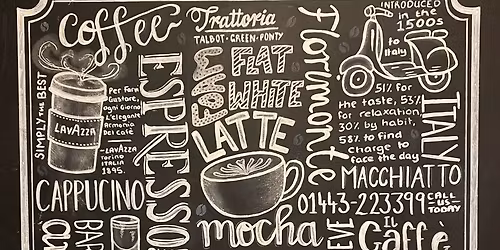 Coffee
SIMPLY THE BEST
LAVAZZA
Per Farn
Gustare,
ogni Giorno
L'elegante
Armonia
Del Cafè
-LAVAZZA
Torino
ITALIA
1895.
CAPPUCINO
BAR
ESPRESSO
Trattoria
TALBOT·GREEN·PONTY
FOAM
FLAT
WHITE
LATTE
mocha
Floramonte
INTRODUCED
in the
1500s
to
Italy
51% for
the taste, 53%
for relaxation
30% by habit,
53% to find
charge to
face the day
ITALY
MACCHIATTO
01443-223399
CALL
US-
TODAY
IL
Caffè